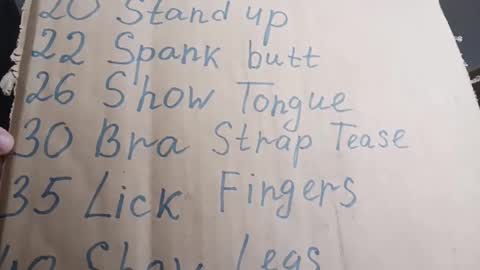 20 Stand up
22 Spank butt
26 Show Tongue
30 Bra Strap Tease
35 Lick Fingers
40 Show Legs